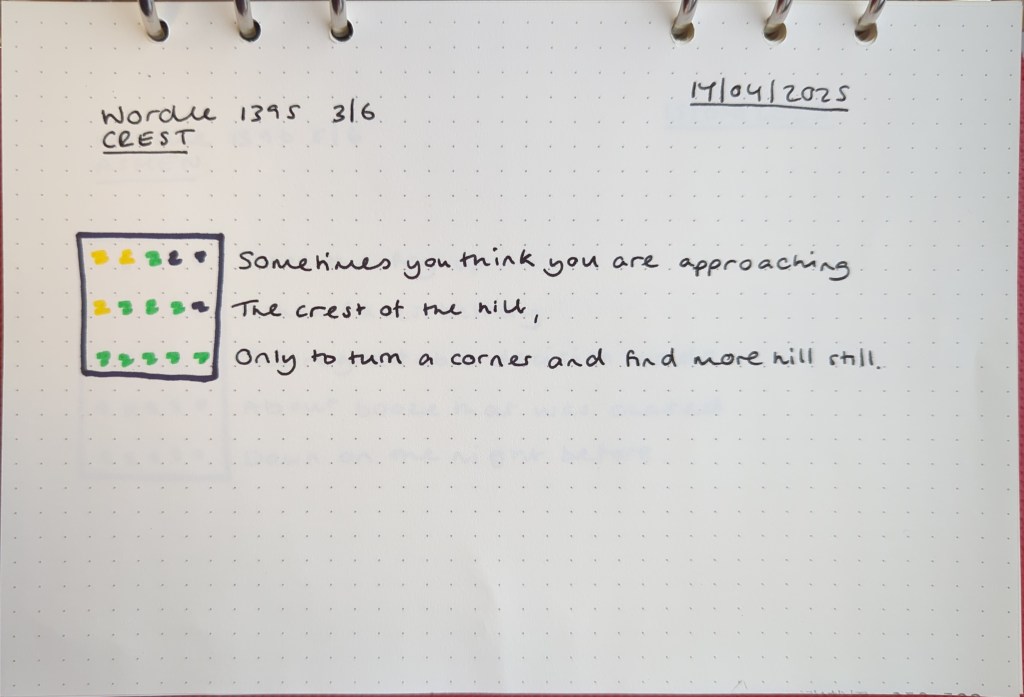 14/04/2025
Wordle 1395 3/6
CREST
Sometimes you think you are approaching
The crest of the hill,
Only to turn a corner and find more hill still.